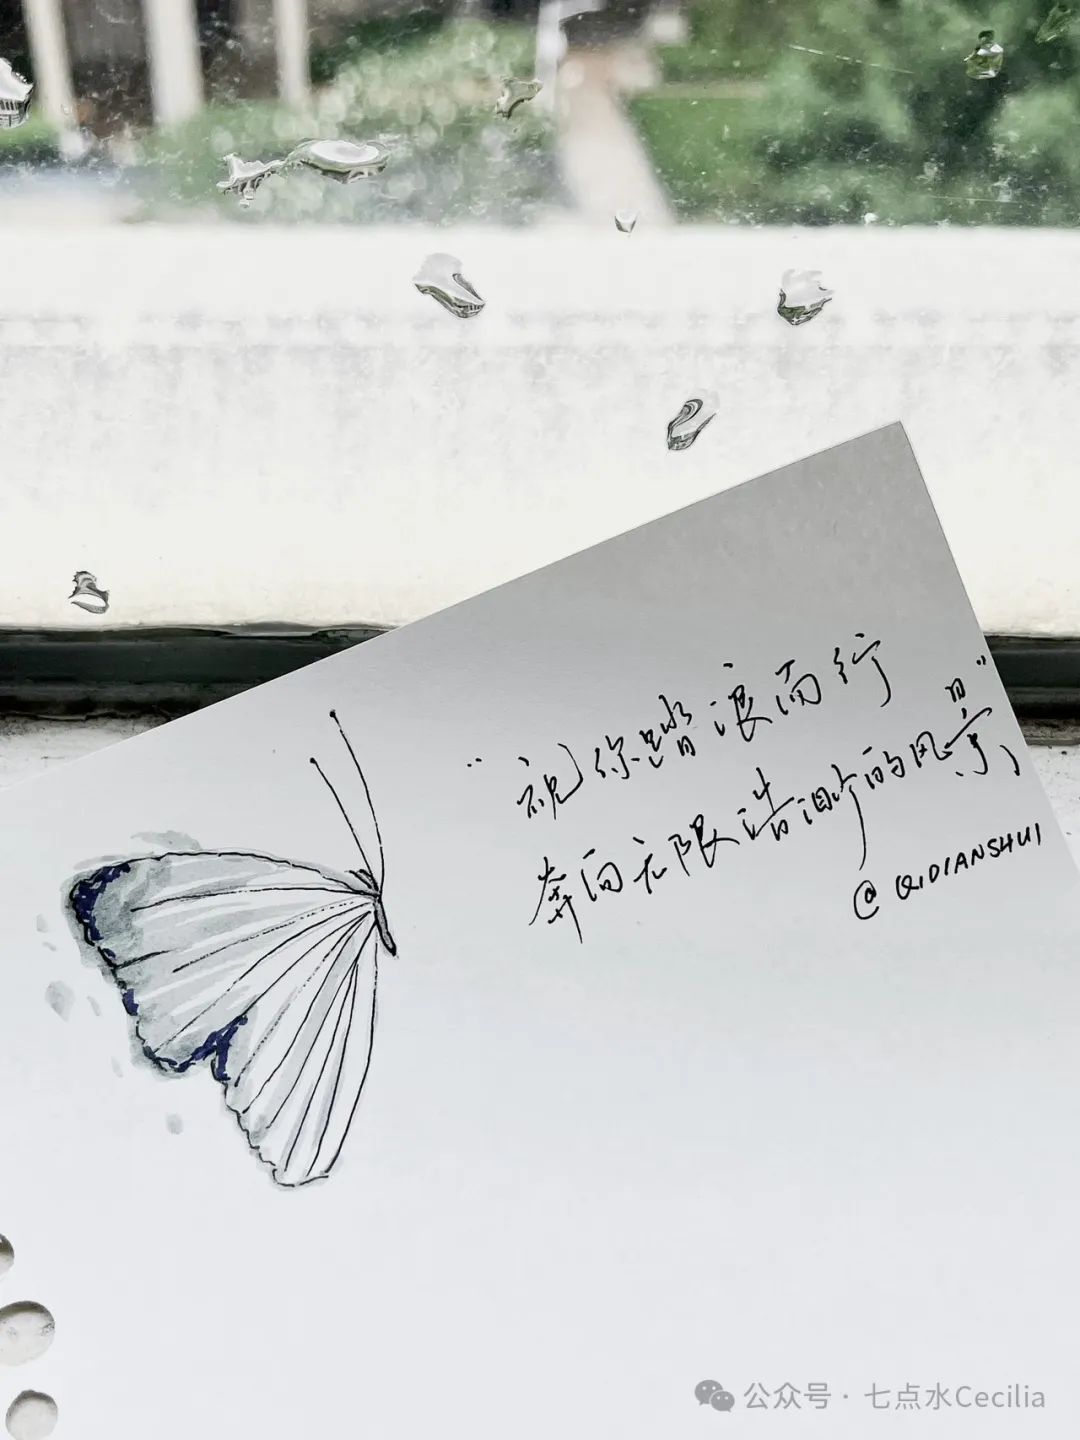 “祝你踏浪而行
奔向无限浩渺的风景”
@QIDIANSHUI
公众号·七点水Cecilia